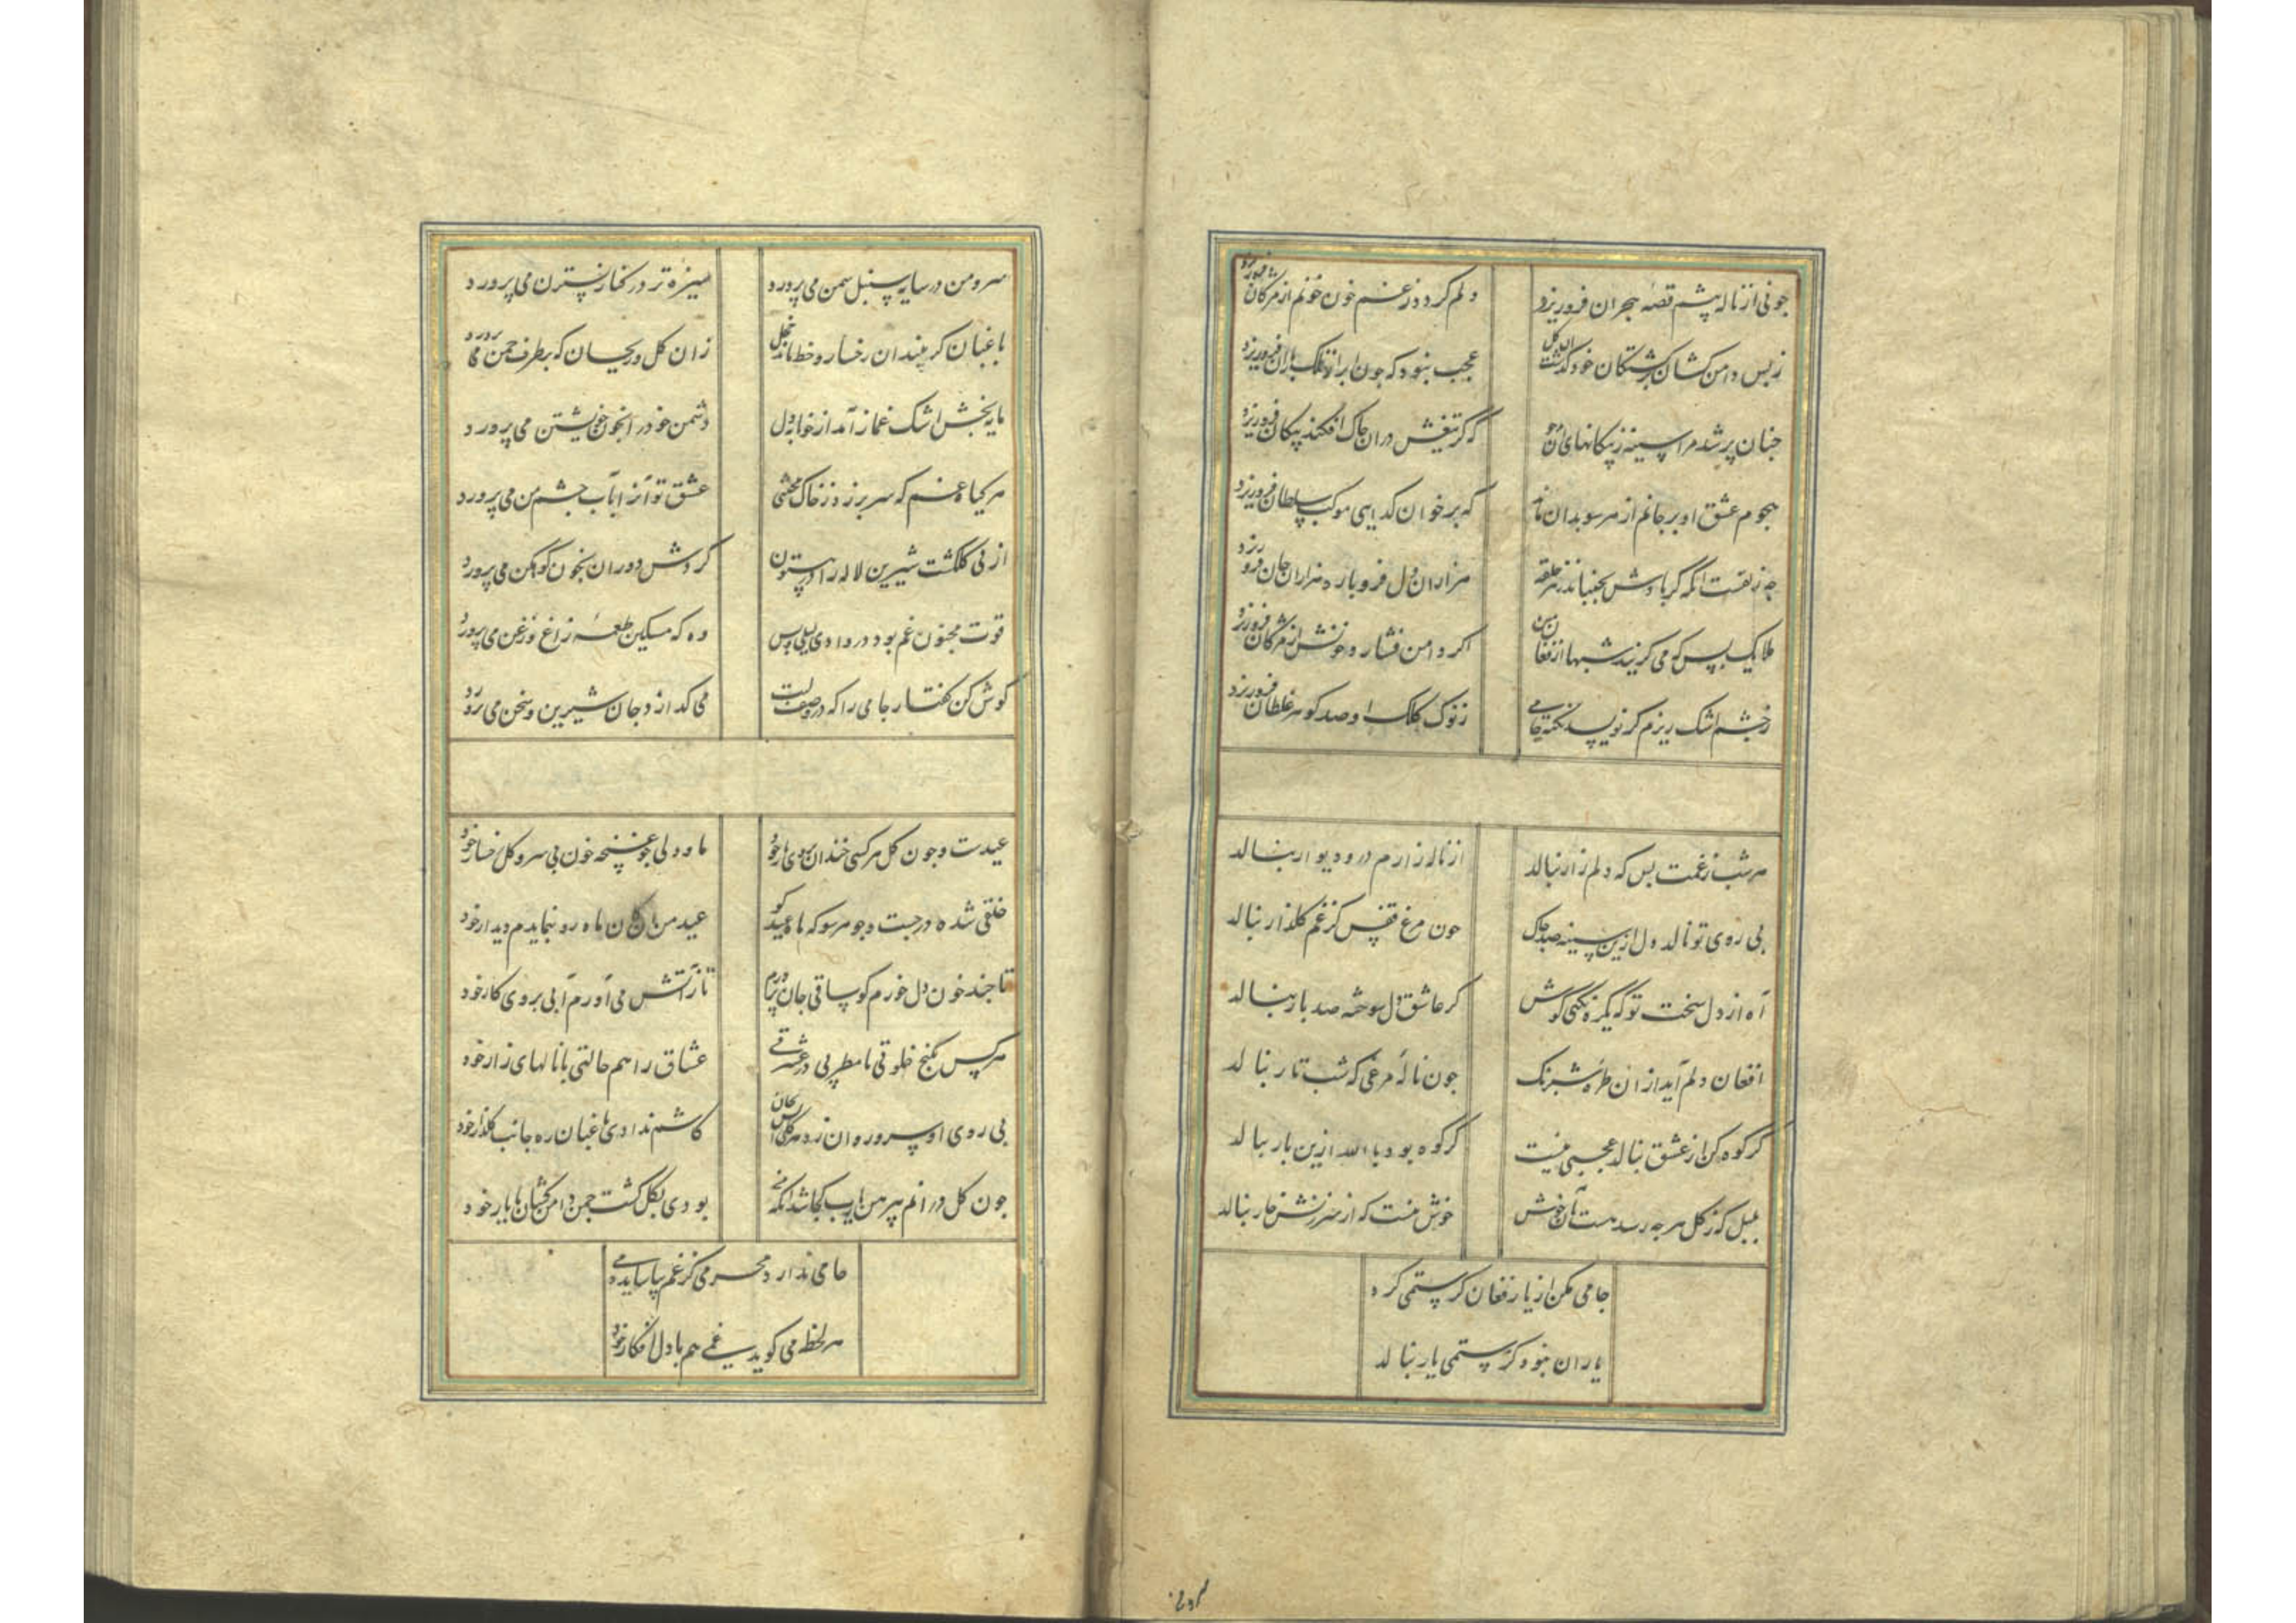 چو نی از ناله پیشم قصهٔ هجران فرو ریزد
دلم گردد ز غم خون خونم از مژگان فرو ریزد
ز بس دامن کشان بر کشتگان خود گذشت آن گل
عجب نبود که چون ابر از فلک باران فرو ریزد
چنان پر شد مرا سینه ز پیکانهای آن
که گر تیغش در آن چاک افکند پیکان فرو ریزد
هجوم عشق او بر جانم از هر سو بدان ماند
که بر خوان گدایی موکب سلطان فرو ریزد
چه زلفست آنکه گر بادش بجنباند ز هر حلقه
هزاران دل فرو بارد هزاران جان فرو ریزد
ملایک بس که می گریند شبها از فغان من
اگر دامن فشارد خونش از مژگان فرو ریزد
ز چشم اشک ریزم گر نویسد نکته جامی
ز نوک کلک او صد گوهر غلطان فرو ریزد
هر شب ز غمت بس که دلم زار بنالد
از ناله زارم در و دیوار بنالد
بی روی تو نالد دل ازین سینه صد چاک
چون مرغ قفس کز غم گلزار بنالد
آه از دل سخت تو که یکره نکنی گوش
گر عاشق دل سوخته صد بار بنالد
افغان دلم آید از آن طرهٔ شبرنگ
چون نالهٔ مرغی که شب تار بنالد
گر کوه کن از عشق بنالد عجبی نیست
گر کوه بود بالله ازین بار بنالد
بلبل که ز گل هر چه رسد هست بآن خوش
خوش نیست که از سرزنش خار بنالد
جامی مکن از یار فغان گر ستمی کرد
یار آن نبود کز ستمی یار بنالد
سرو من
سرو من در سایه سنبل سمن می پرورد
سبزهٔ تر در کنار نسترن می پرورد
باغبان گر بیند آن رخسار و خط ماند خجل
زان گل و ریحان که بر طرف چمن می پرورد
مایه بخش اشک غماز آمد از خوناب دل
دشمن خود را بخون خویشتن می پرورد
هر گیاه غم که سر بر زد ز خاک محنتی
عشق تو آنرا بآب چشم من می پرورد
از پی گلگشت شیرین لاله را در بیستون
گردش دوران بخون کوهکن می پرورد
قوت مجنون غم بود در وادی لیلی و بس
وه که مسکین طعمهٔ زاغ و زغن می پرورد
گوش کن گفتار جامی را که در وصف لبت
می گدازد جان شیرین و سخن می پرورد
عیدست و چون گل هر کسی خندان بروی یار خود
ما و دلی چون غنچه خون بی سرو گل رخسار خود
خلقی شده در جست و جو هر سو که ماه عید کو
عید من آن کان ماه رو بنمایدم دیدار خود
تا چند خون دل خورم کو ساقی جان پرورم
تا ز آتش می آورم آبی بروی کار خود
هر کس بکنج خلوتی با مطربی در عشرتی
عشاق را هم حالتی با نالهای زار خود
بی روی او سرو روان زد هر گلی آتش بجان
کاشم ندادی باغبان ره جانب گلزار خود
چون گل درانم پیرهن یا رب کجا شد آنکه من
بودی بگل گشت چمن دامن کشان با یار خود
جامی ندارد محرمی کز غم بیاساید دمی
هر لحظه می گوید غمی هم با دل افگار خود